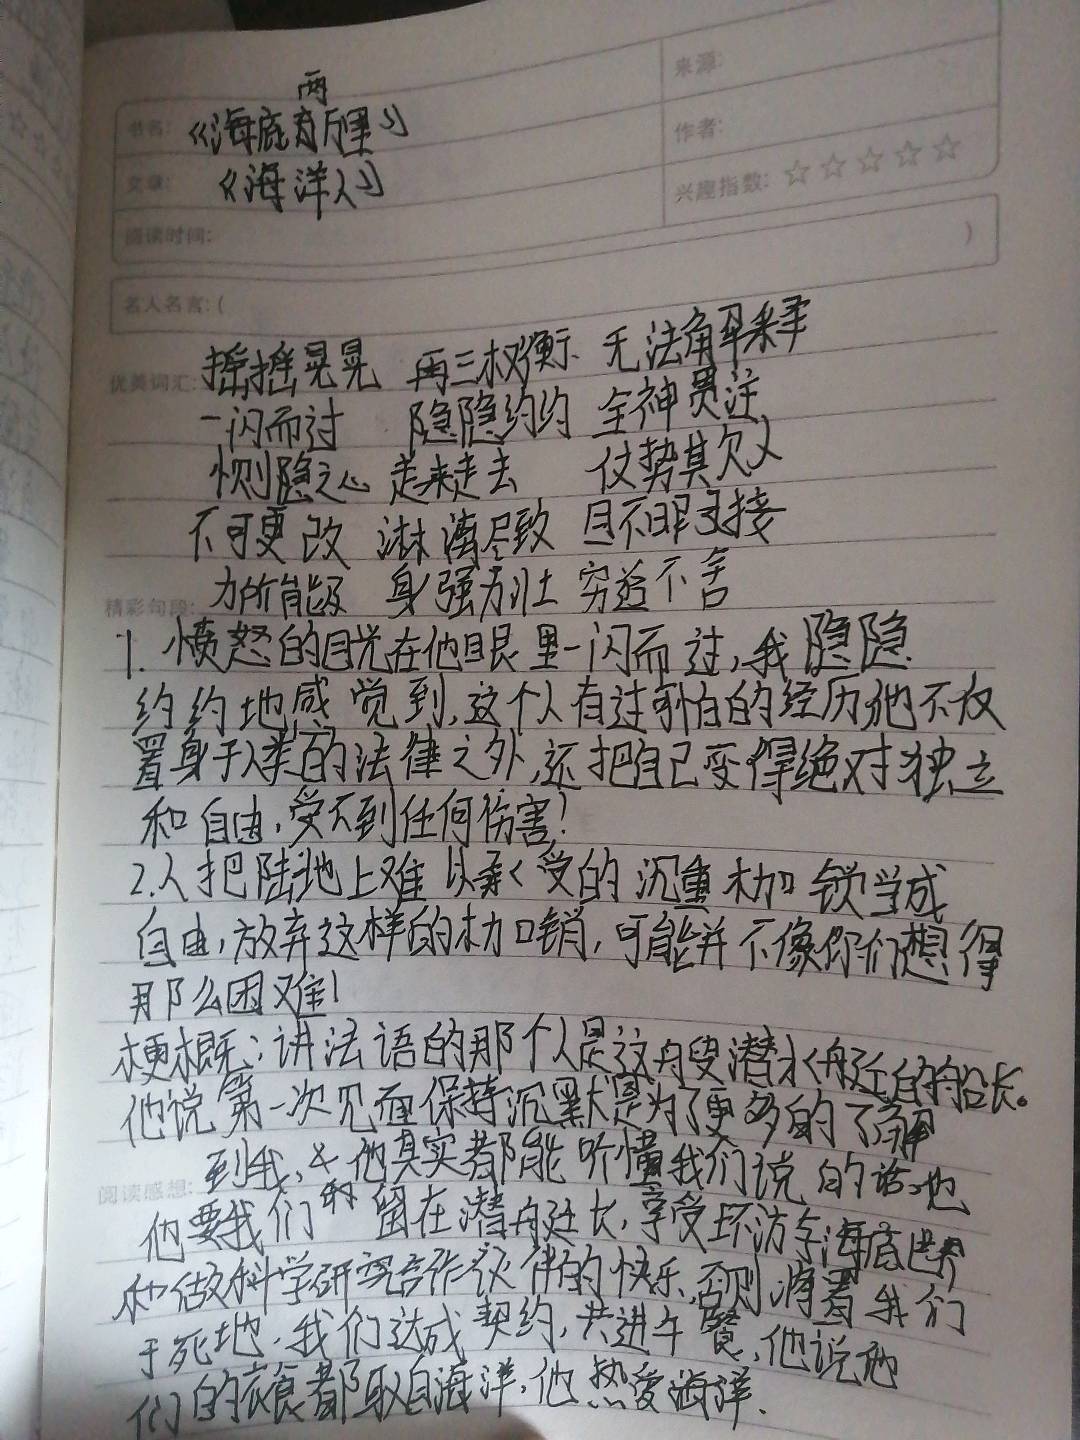 来源:
两
书名: 《海底万里》
作者:
文章: 《海洋人》
兴趣指数: ☆☆☆☆☆
阅读时间:
)
名人名言: (
摇摇晃晃 再三权衡 无法解释
优美词汇:
一闪而过 隐隐约约 全神贯注
恻隐之心 走来走去 仗势其欠人
不可更改 淋漓尽致 目不暇接
力所能及 身强力壮 穷追不舍
精彩句段:
1. 愤怒的目光在他眼里一闪而过,我隐隐
约约地感觉到,这个人有过可怕的经历,他不仅
置身于人类的法律之外,还把自己变得绝对独立
和自由,受不到任何伤害!
2.人把陆地上难以承受的沉重枷锁当成
自由,放弃这样的枷锁,可能并不像你们想得
那么困难!
梗概:讲法语的那个人是这艘潜水艇的船长。
他说第一次见面保持沉默是为了更多的了解
到我,他其实都能听懂我们说的话。
阅读感想:
他要我们留在潜艇,享受环游海底世界
和做科学研究合作伙伴的快乐,否则将置我们
于死地.我们达成契约,共进午餐,他说他
们的衣食都取自海洋,他热爱海洋.